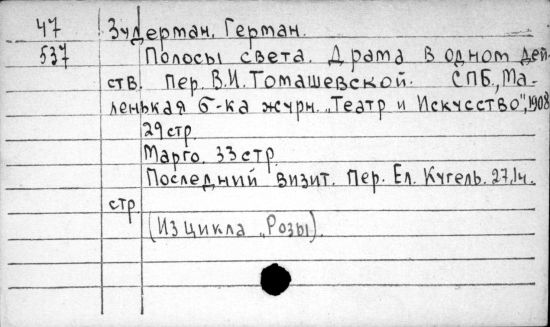 47 Зудерман, Герман.
537 Полосы света. Драма в одном дей-
ств. Пер. В.И. Томашевской. СПБ., Ма-
ленькая б-ка журн. „Театр и Искусство", 1908
29 стр.
Марго. 33 стр.
Последний визит. Пер. Ел. Кугель. 27,1ч.
стр
(Из цикла „Розы).